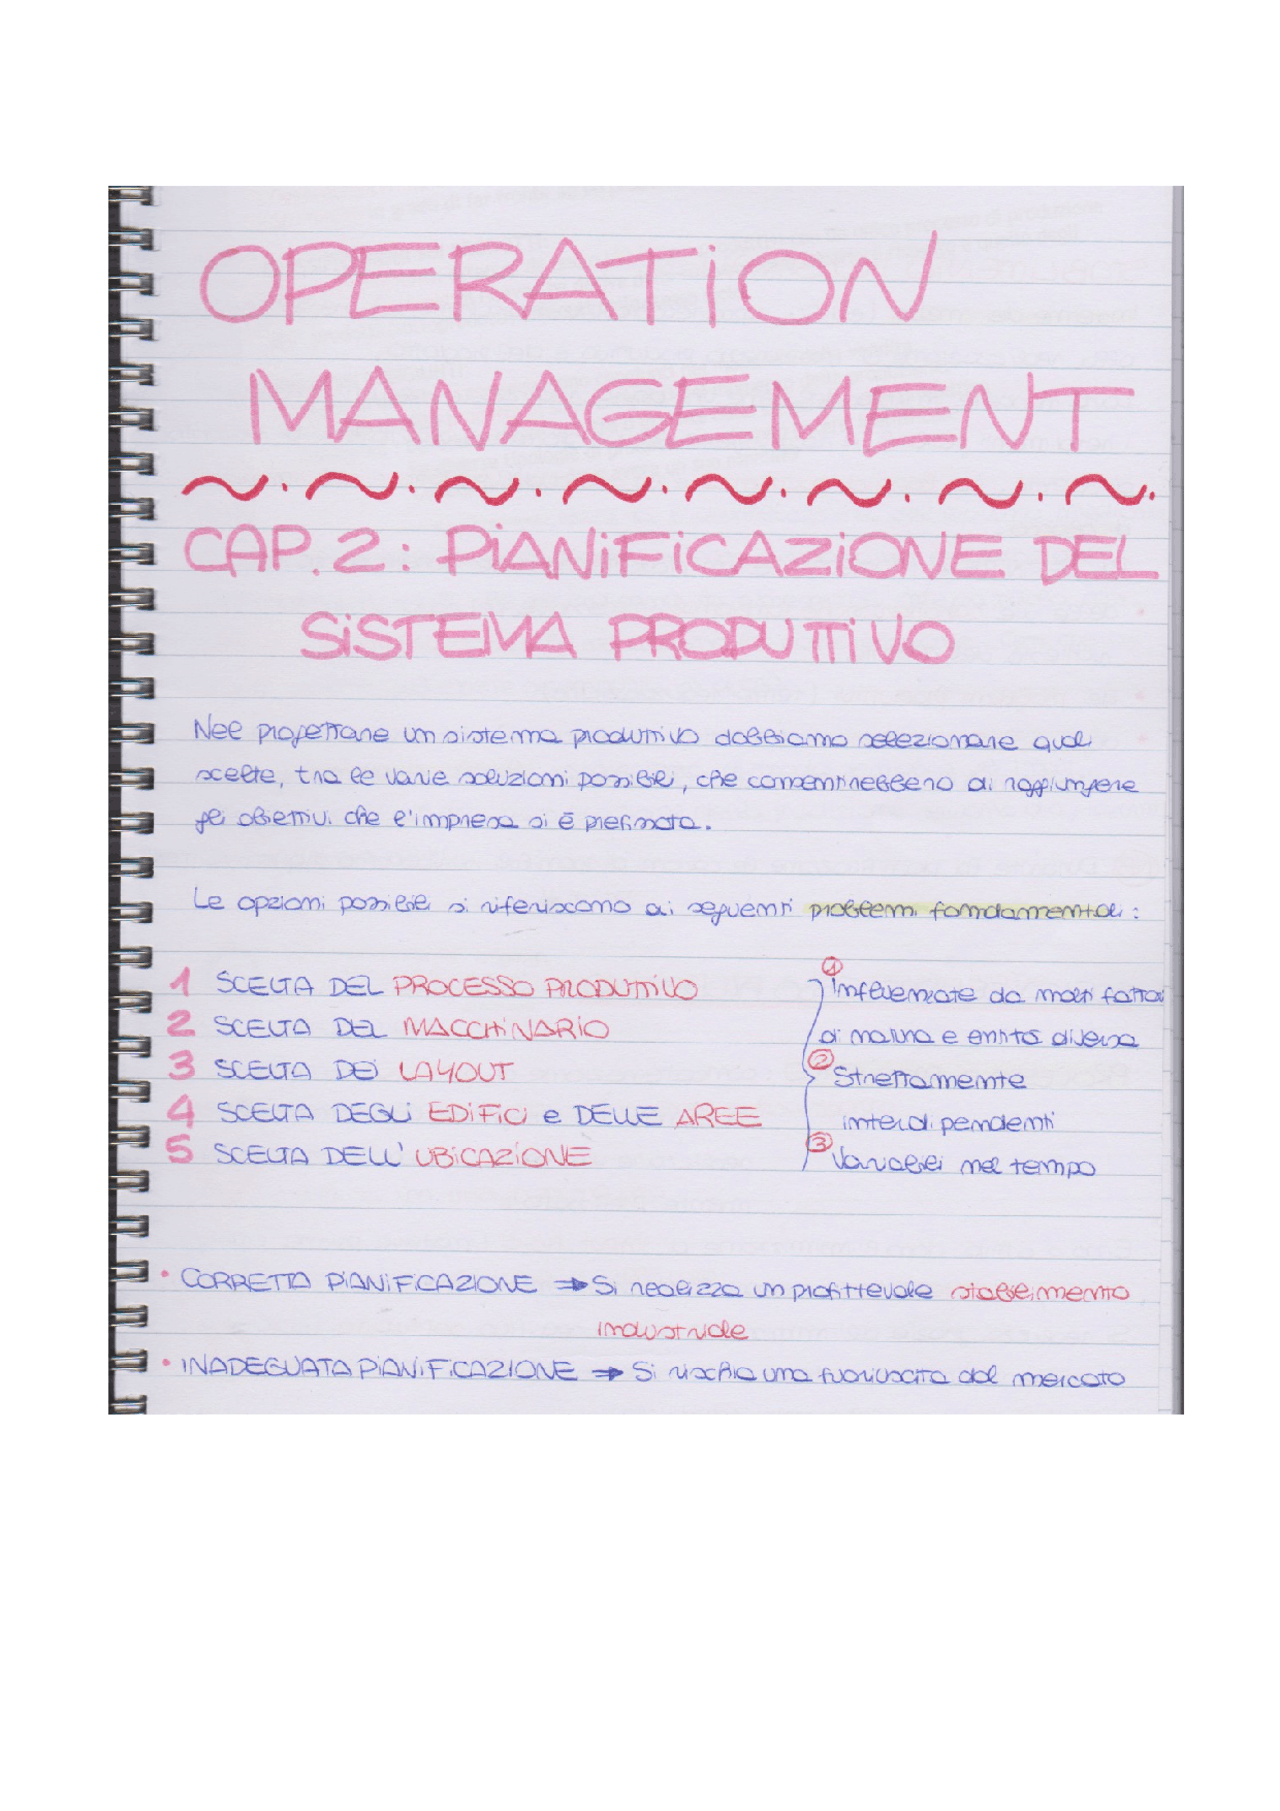 OPERATION
MANAGEMENT
CAP. 2: PIANIFICAZIONE DEL
SISTEMA PRODUTTIVO
Nel progettare un sistema produttivo dobbiamo selezionare quali
scelte, tra le varie soluzioni possibili, che consentirebbero di raggiungere
gli obiettivi che l'impresa si è prefissata.
Le opzioni possibili si riferiscono ai seguenti problemi fondamentali:
1 SCELTA DEL PROCESSO PRODUTTIVO
2 SCELTA DEL MACCHINARIO
3 SCELTA DEI LAYOUT
4 SCELTA DEGLI EDIFICI e DELLE AREE
5 SCELTA DELL'UBICAZIONE
1 Influenzate da molti fattori
di natura e entità diversa
2 Strettamente
interdipendenti
3 Variabili nel tempo
• CORRETTA PIANIFICAZIONE ⇒ Si realizza un profittevole stabilimento
industriale
• INADEGUATA PIANIFICAZIONE ⇒ Si rischia una fuoriuscita dal mercato